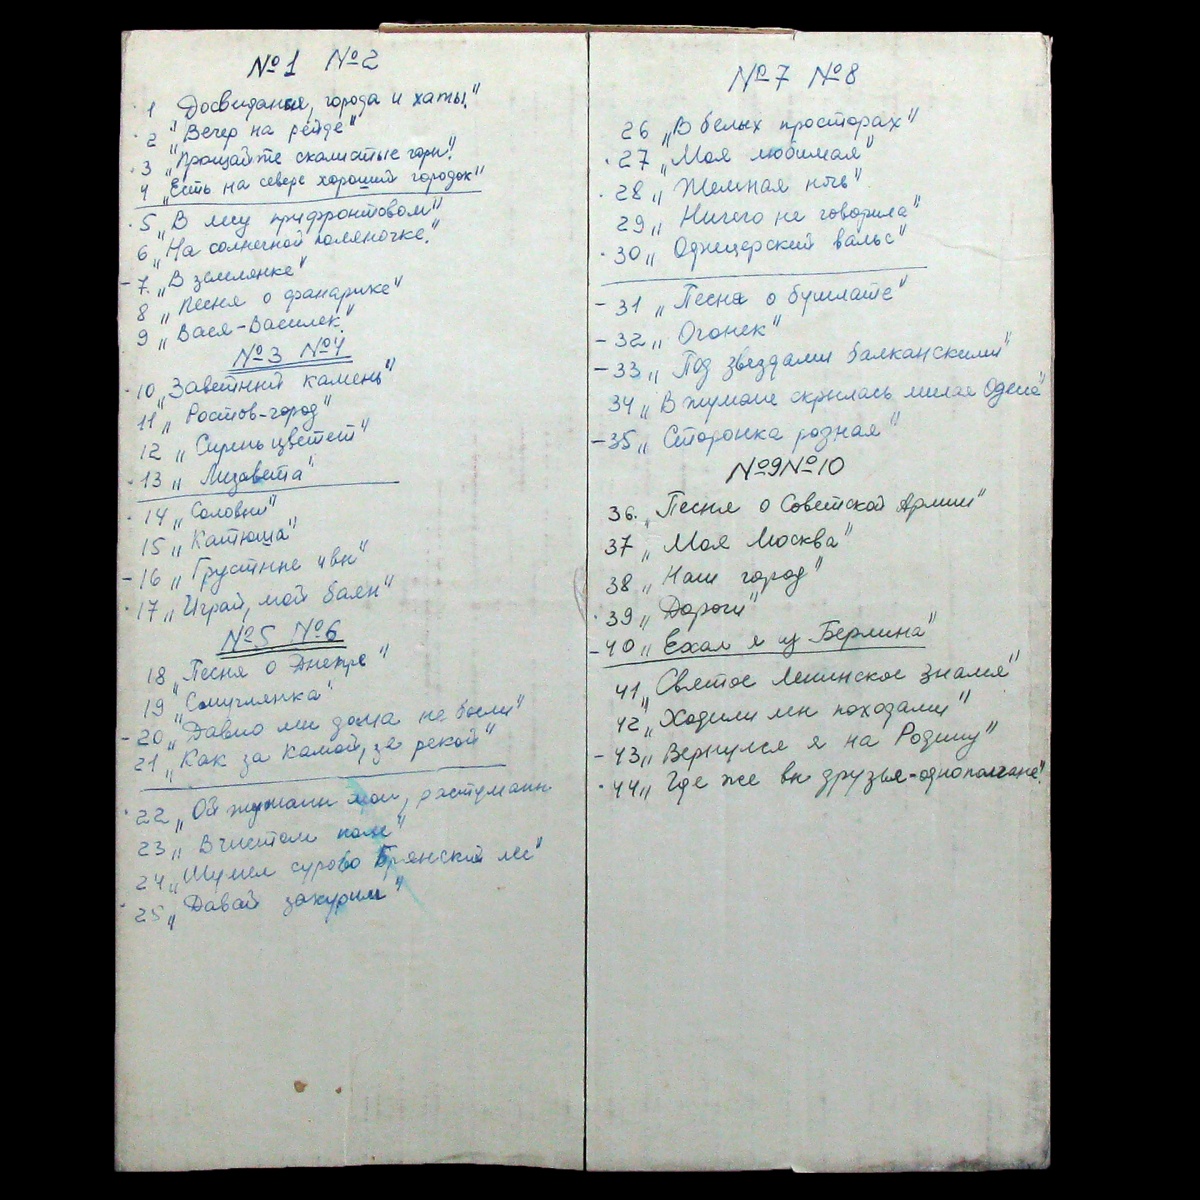 №1 №2
1 "Досвидания, города и хаты."
2 "Вечер на рейде"
3 "Прощайте скалистые горы."
4 "Есть на севере хороший городок"
5 "В лесу прифронтовом"
6 "На солнечной поляночке."
7. "В землянке"
8 "Песня о фанарике"
9 "Вася-Василек."
№3 №4
10 "Заветный камень"
11 "Ростов-город"
12 "Сирень цветет"
13 "Лизавета"
14 "Соловьи"
15 "Катюша"
16 "Грустные ивы"
17 "Играй, мой баян"
№5 №6
18 "Песня о Днепре"
19 "Смуглянка"
20 "Давно мы дома не были"
21 "Как за Камой, за рекой"
22 "Ой туманы мои, растуманы
23 "В чистом поле"
24 "Шумел сурово Брянский лес"
25 "Давай закурим"
№7 №8
26 "В белых просторах"
27 "Моя любимая"
28 "Темная ночь"
29 "Ничего не говорила"
30 "Офицерский вальс"
31 "Песня о бушлате"
32 "Огонек"
33 "Под звездами балканскими"
34 "В тумане скрылась милая Одесса"
35 "Сторонка родная"
№9 №10
36. "Песня о Советской Армии"
37 "Моя Москва"
38 "Наш город"
39 "Дороги"
40 "Ехал я из Берлина"
41 "Святое Ленинское знамя"
42 "Ходили мы походами"
43 "Вернулся я на Родину"
44 "Где же вы друзья-однополчане."